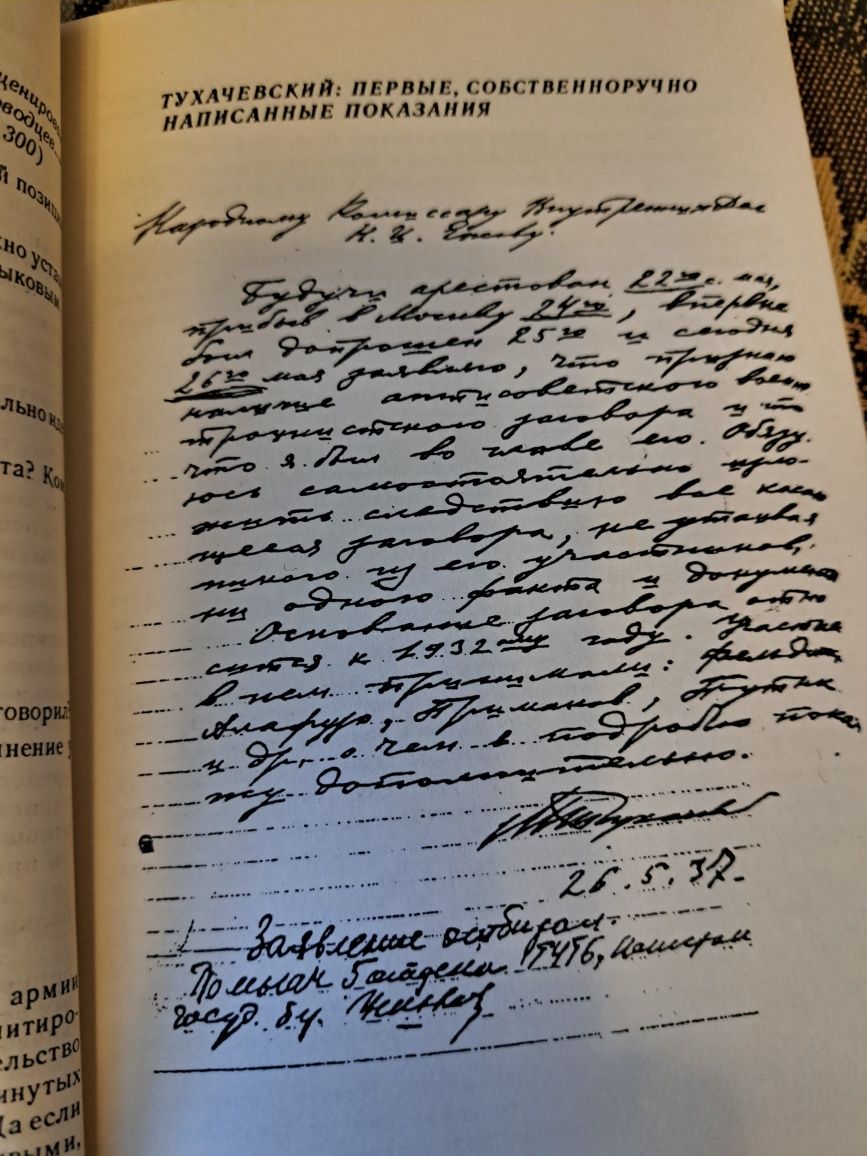 ТУХАЧЕВСКИЙ: ПЕРВЫЕ, СОБСТВЕННОРУЧНО
НАПИСАННЫЕ ПОКАЗАНИЯ
Народному Комиссару Внутренних Дел
Н. И. Ежову.
Будучи арестован 22го с. мая,
прибыв в Москву 24го, впервые
был допрошен 25го и сегодня
26го мая заявляю, что признаю
наличие антисоветского военно
троцкистского заговора и то
что я был во главе его. Обязу
юсь самостоятельно изло
жить следствию все касаю
щееся заговора, не утаивая
никого из его участников,
ни одного факта и документа
Основание заговора отно
сится к 1932му году. Участие
в нем принимали: Фельдман,
Алафузо, Примаков, Путна
и др., о чем я подробно пока
жу дополнительно.
26.5.37.
Заявление отбирал.
госуд. бу.
ценирово
оводцев
300)
й позици
но уста
ыковым
льно
та? Ком
говорил
нение
армии
итиро-
льство
инутых
Да если
выми,